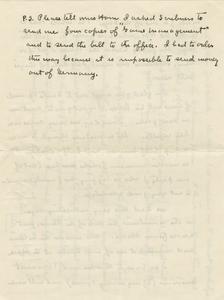 P.S. Please tell miss Horn I asked Scribners to
send me four copies of "Game management"
and to send the bill to the office. I had to order
this way because it is impossible to send money
out of Germany.